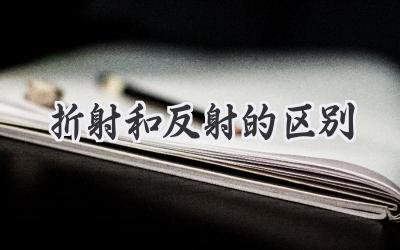 折射和反射的区别